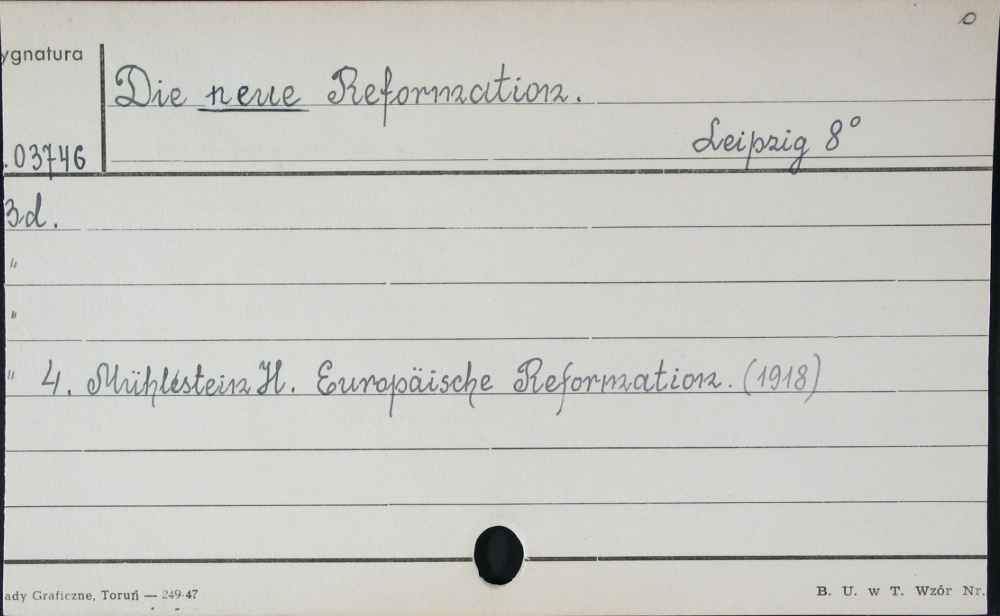 0
ygnatura
Die neue Reformation.
Leipzig 8°
.03746
Bd.
"
"
" 4. Mühlestein H. Europäische Reformation. (1918)
ady Graficzne, Toruń — 249-47
B. U. w T. Wzór Nr.